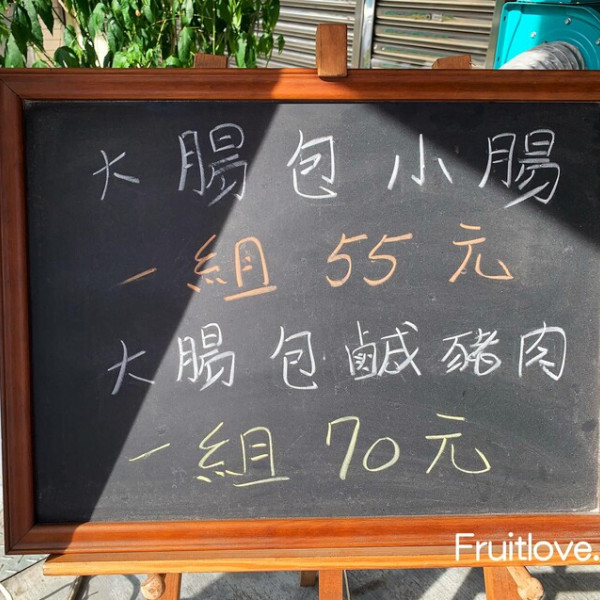 大腸包小腸
一組 55 元
大腸包鹹豬肉
一組 70 元
Fruitlove.